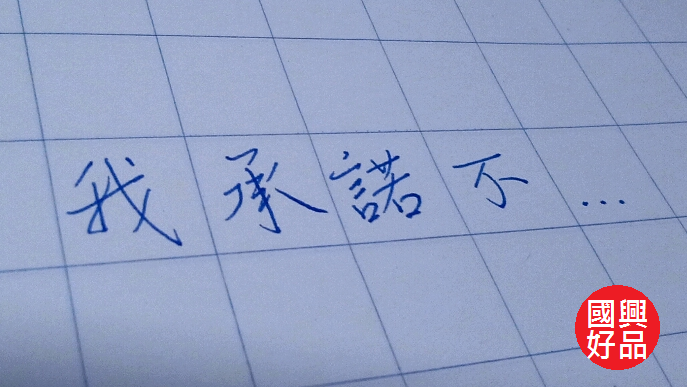 我承諾不...
國興
好品